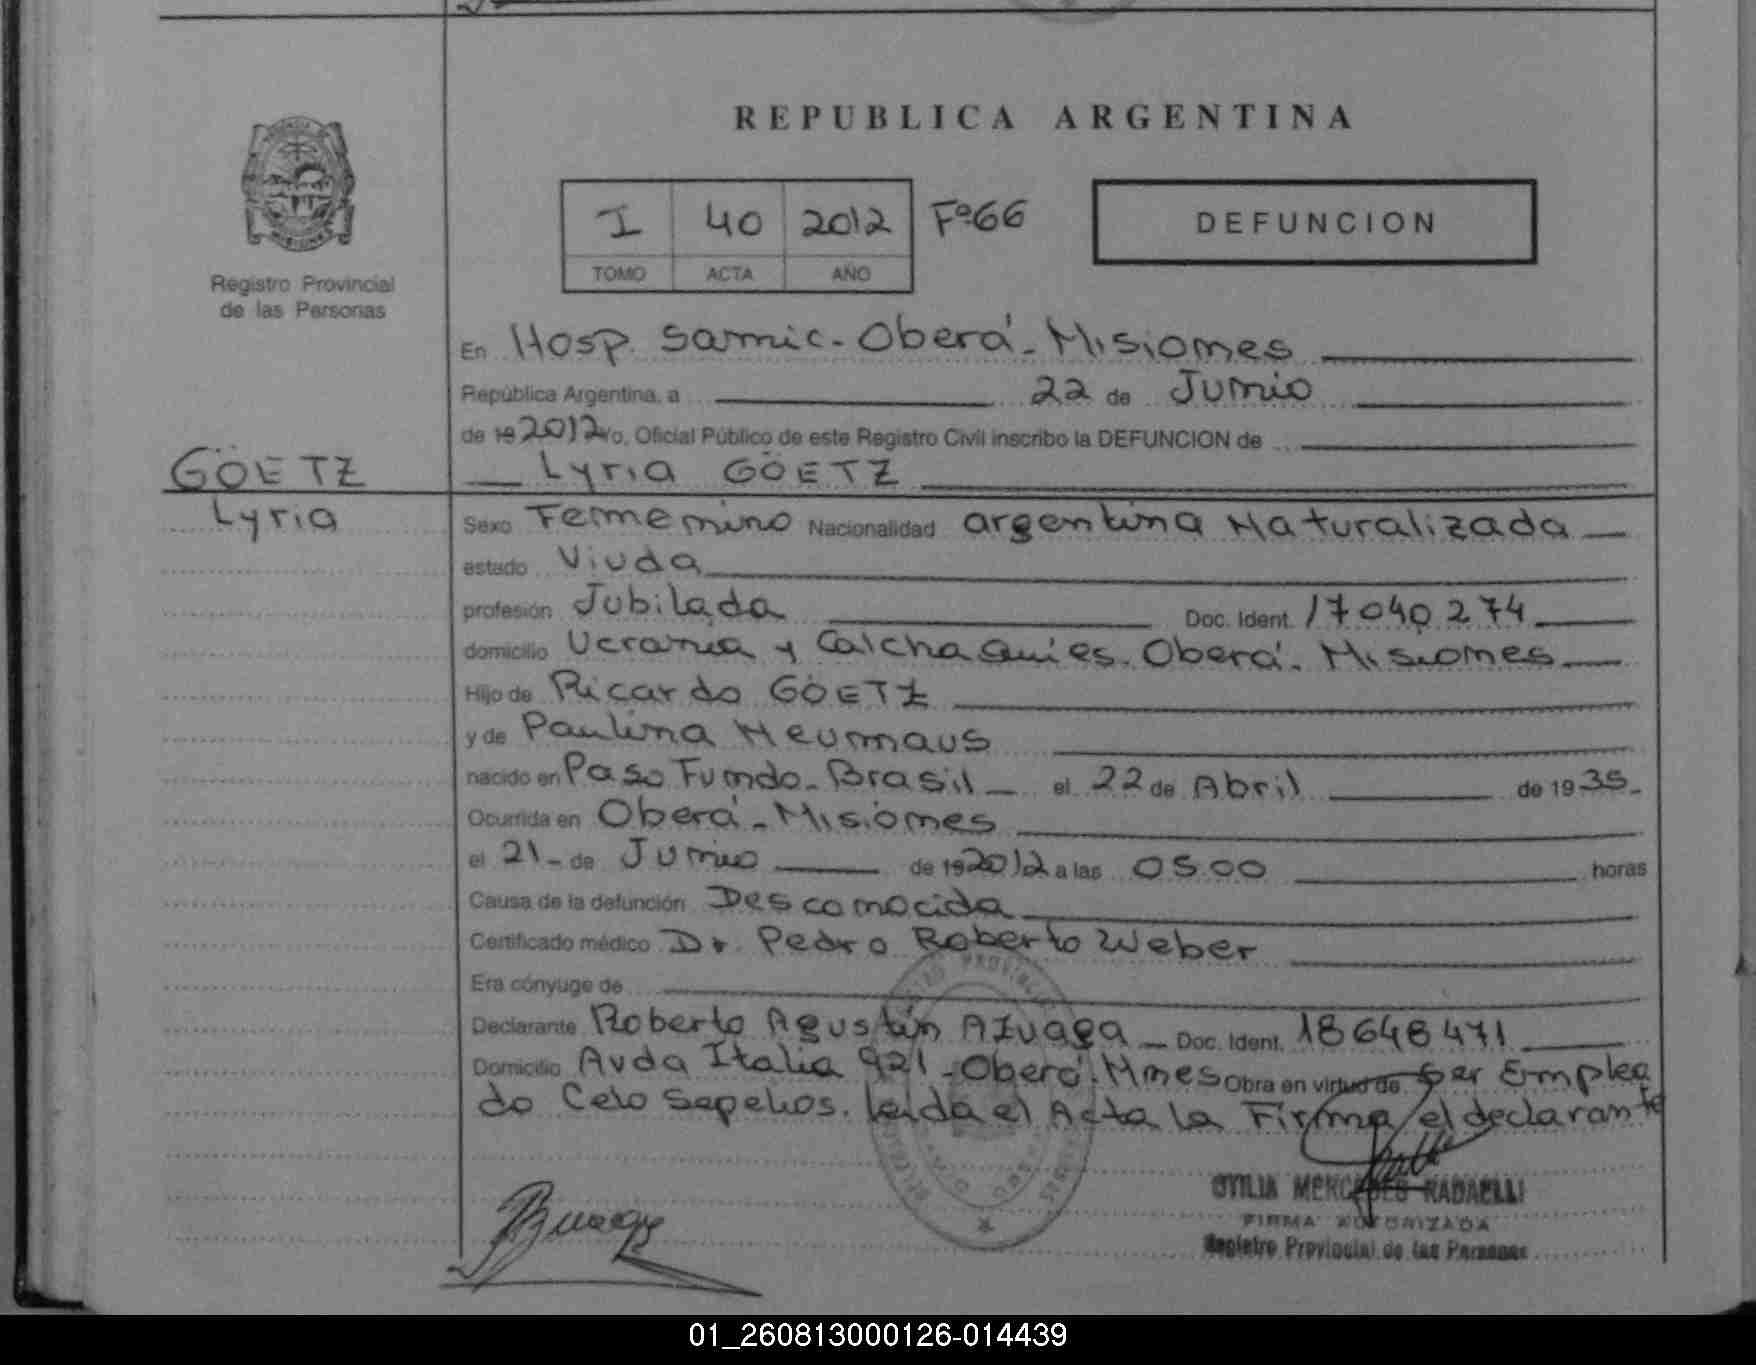 REPUBLICA ARGENTINA
PROVINCIA DE
MISIONES
Registro Provincial
de las Personas
I 40 2012 Fº66
TOMO ACTA AÑO
DEFUNCION
En Hosp. Samic - Oberá - Misiones
República Argentina, a 22 de Junio
de 19 2012 Yo, Oficial Público de este Registro Civil inscribo la DEFUNCION de
GÖETZ
Lyria GÖETZ
Lyria
Sexo Femenino Nacionalidad argentina Naturalizada
estado Viuda
profesión Jubilada Doc. Ident. 17040274
domicilio Ucrania y Calchaquies. Oberá - Misiones
Hijo de Ricardo GÖETZ
y de Paulina Neumaus
nacido en Paso Fundo - Brasil el 22 de Abril de 1935
Ocurrida en Oberá - Misiones
el 21 - de Junio de 19 2012 a las 05.00 horas
Causa de la defunción Desconocida
Certificado médico Dr. Pedro Roberto Weber
Era cónyuge de
Declarante Roberto Agustín AZUAGA Doc. Ident. 18648471
Domicilio Avda Italia 921 - Oberá - Mnes Obra en virtud de ser Emplea
do Celo Sepelios. leida el Acta la Firma el declarante
OTILIA MERCEDES RADAELLI
FIRMA AUTORIZADA
Registro Provincial de las Personas
01_260813000126-014439